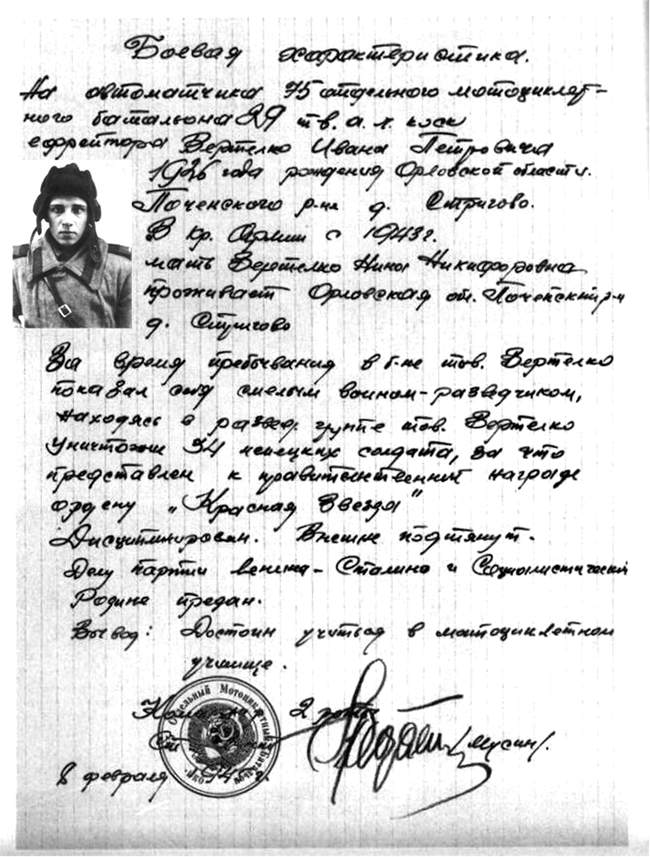 Боевая характеристика.
На автоматчика 75 отдельного мотоциклет-
ного батальона 29 тв. а. х. коск
ефрейтора Вертелко Ивана Петровича
1926 года рождения Орловской области.
Поченского р-на д. Стригово.
В Кр. Армии с 1943 г.
мать Вертелко Нина Никифоровна
проживает Орловская об. Почепский р-н
д. Стригово
За время пребывания в б-не тов. Вертелко
показал себя смелым воином-разведчиком,
находясь в развед. группе тов. Вертелко
уничтожил 34 немецких солдата, за что
представлен к правительственной награде
ордену „Красная Звезда"
Дисциплинирован. Внешне подтянут.
Делу партии Ленина-Сталина и Социалистической
Родине предан.
Вывод: Достоин учиться в мотоциклетном
училище.
2 роты
/Мусин/.
8 февраля 1945 г.
Отдельный Мотоциклетный Батальон